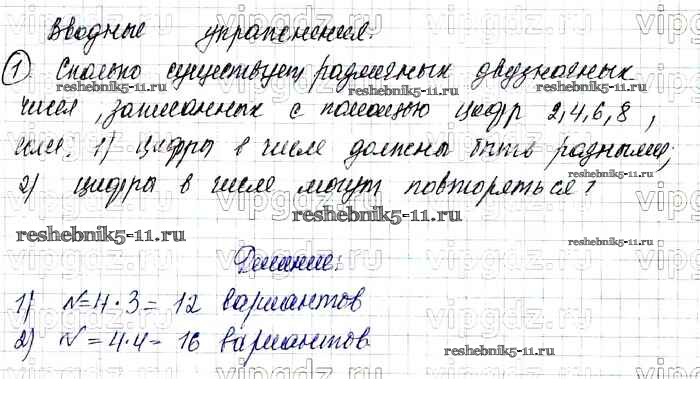 Вводные упражнения.
1 Сколько существует различных двузначных
чисел, записанных с помощью цифр 2, 4, 6, 8,
если: 1) цифры в числе должны быть разными;
2) цифры в числе могут повторяться?
Решение:
1) N = 4 · 3 = 12 вариантов
2) N = 4 · 4 = 16 вариантов
reshebnik5-11.ru
reshebnik5-11.ru
reshebnik5-11.ru
reshebnik5-11.ru
reshebnik5-11.ru
reshebnik5-11.ru
reshebnik5-11.ru
vipgdz.ru